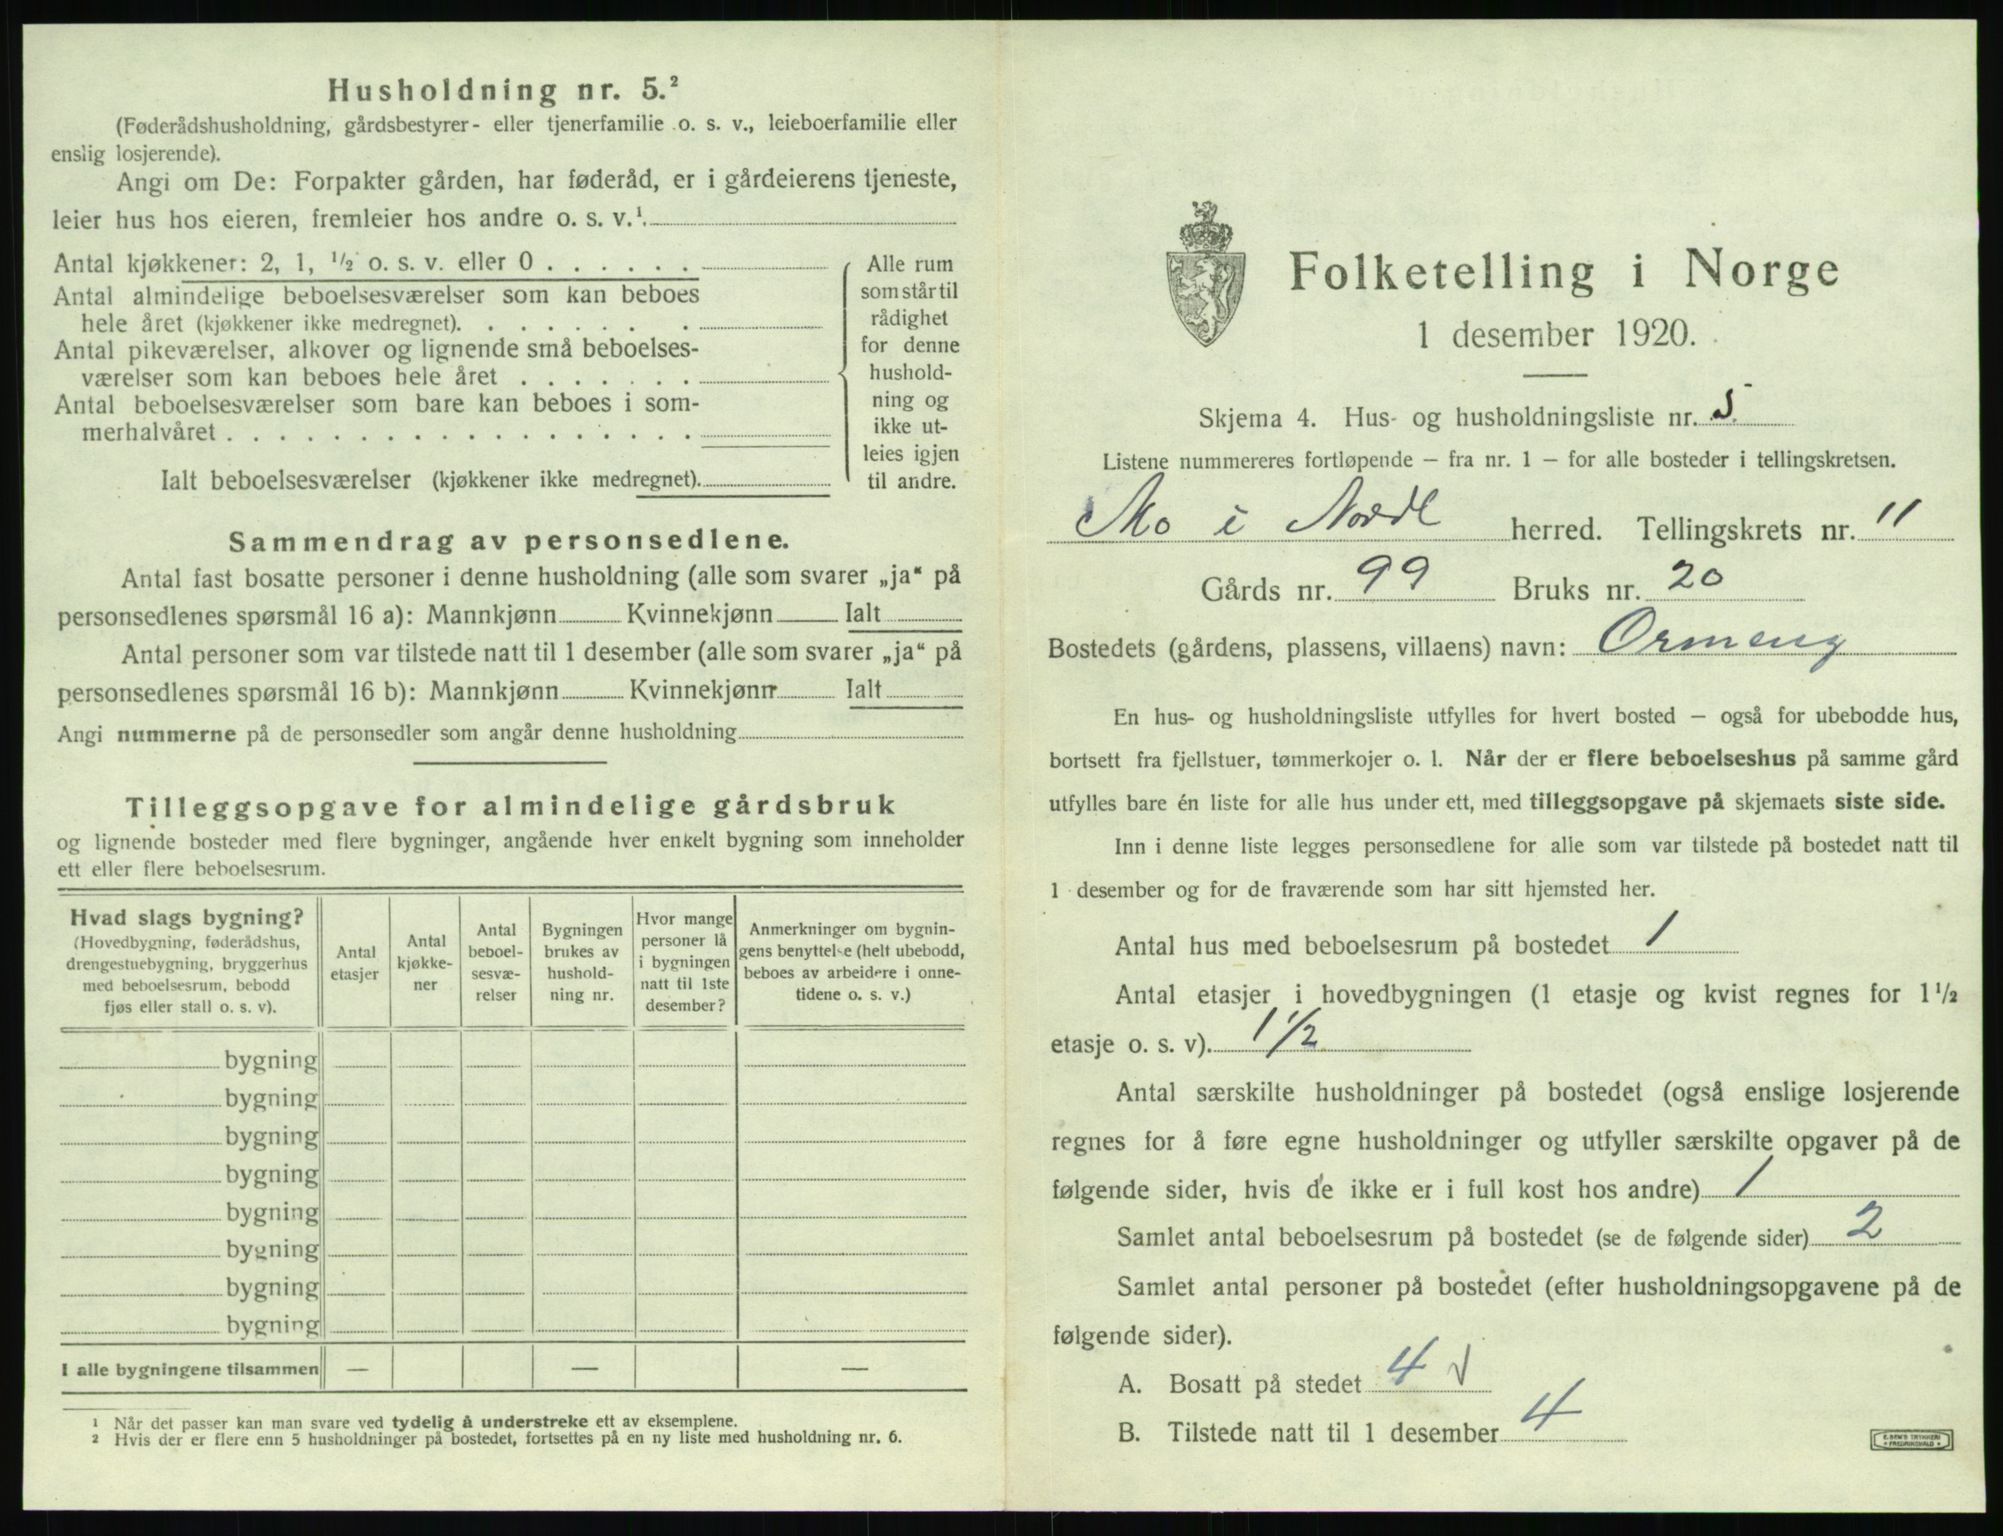 Husholdning nr. 5.²
(Føderådshusholdning, gårdsbestyrer- eller tjenerfamilie o. s. v., leieboerfamilie eller
enslig losjerende).
Angi om De: Forpakter gården, har føderåd, er i gårdeierens tjeneste,
leier hus hos eieren, fremleier hos andre o. s. v.¹.
Antal kjøkkener: 2, 1, ½ o. s. v. eller 0 . . . . . .
Antal almindelige beboelsesværelser som kan beboes
hele året (kjøkkener ikke medregnet). . . . . . . .
Antal pikeværelser, alkover og lignende små beboelses-
værelser som kan beboes hele året . . . . . . .
Antal beboelsesværelser som bare kan beboes i som-
merhalvåret . . . . . . . . . . . . . . . . . .
Ialt beboelsesværelser (kjøkkener ikke medregnet).
Alle rum
som står til
rådighet
for denne
hushold-
ning og
ikke ut-
leies igjen
til andre.
Sammendrag av personsedlene.
Antal fast bosatte personer i denne husholdning (alle som svarer „ja“ på
personsedlenes spørsmål 16 a): Mannkjønn Kvinnekjønn Ialt
Antal personer som var tilstede natt til 1 desember (alle som svarer „ja“ på
personsedlenes spørsmål 16 b): Mannkjønn Kvinnekjønn Ialt
Angi nummerne på de personsedler som angår denne husholdning
Tilleggsopgave for almindelige gårdsbruk
og lignende bosteder med flere bygninger, angående hver enkelt bygning som inneholder
ett eller flere beboelsesrum.
Hvad slags bygning?
(Hovedbygning, føderådshus,
drengestuebygning, bryggerhus
med beboelsesrum, bebodd
fjøs eller stall o. s. v).
Antal
etasjer
Antal
kjøkke-
ner
Antal
beboel-
sesvæ-
relser
Bygningen
brukes av
hushold-
ning nr.
Hvor mange
personer lå
i bygningen
natt til 1ste
desember?
Anmerkninger om bygnin-
gens benyttelse (helt ubebodd,
beboes av arbeidere i onne-
tidene o. s. v.)
bygning
bygning
bygning
bygning
bygning
bygning
bygning
bygning
I alle bygningene tilsammen — — —
¹ Når det passer kan man svare ved tydelig å understreke ett av eksemplene.
² Hvis der er flere enn 5 husholdninger på bostedet, fortsettes på en ny liste med husholdning nr. 6.
Folketelling i Norge
1 desember 1920.
Skjema 4. Hus- og husholdningsliste nr. 5
Listene nummereres fortløpende – fra nr. 1 – for alle bosteder i tellingskretsen.
Mo i Nordl herred. Tellingskrets nr. 11
Gårds nr. 99 Bruks nr. 20
Bostedets (gårdens, plassens, villaens) navn: Ormeng
En hus- og husholdningsliste utfylles for hvert bosted – også for ubebodde hus,
bortsett fra fjellstuer, tømmerkojer o. l. Når der er flere beboelseshus på samme gård
utfylles bare én liste for alle hus under ett, med tilleggsopgave på skjemaets siste side.
Inn i denne liste legges personsedlene for alle som var tilstede på bostedet natt til
1 desember og for de fraværende som har sitt hjemsted her.
Antal hus med beboelsesrum på bostedet 1
Antal etasjer i hovedbygningen (1 etasje og kvist regnes for 1½
etasje o. s. v). 1 1/2
Antal særskilte husholdninger på bostedet (også enslige losjerende
regnes for å føre egne husholdninger og utfyller særskilte opgaver på de
følgende sider, hvis de ikke er i full kost hos andre) 1
Samlet antal beboelsesrum på bostedet (se de følgende sider) 2
Samlet antal personer på bostedet (efter husholdningsopgavene på de
følgende sider).
A. Bosatt på stedet 4 √
B. Tilstede natt til 1 desember 4